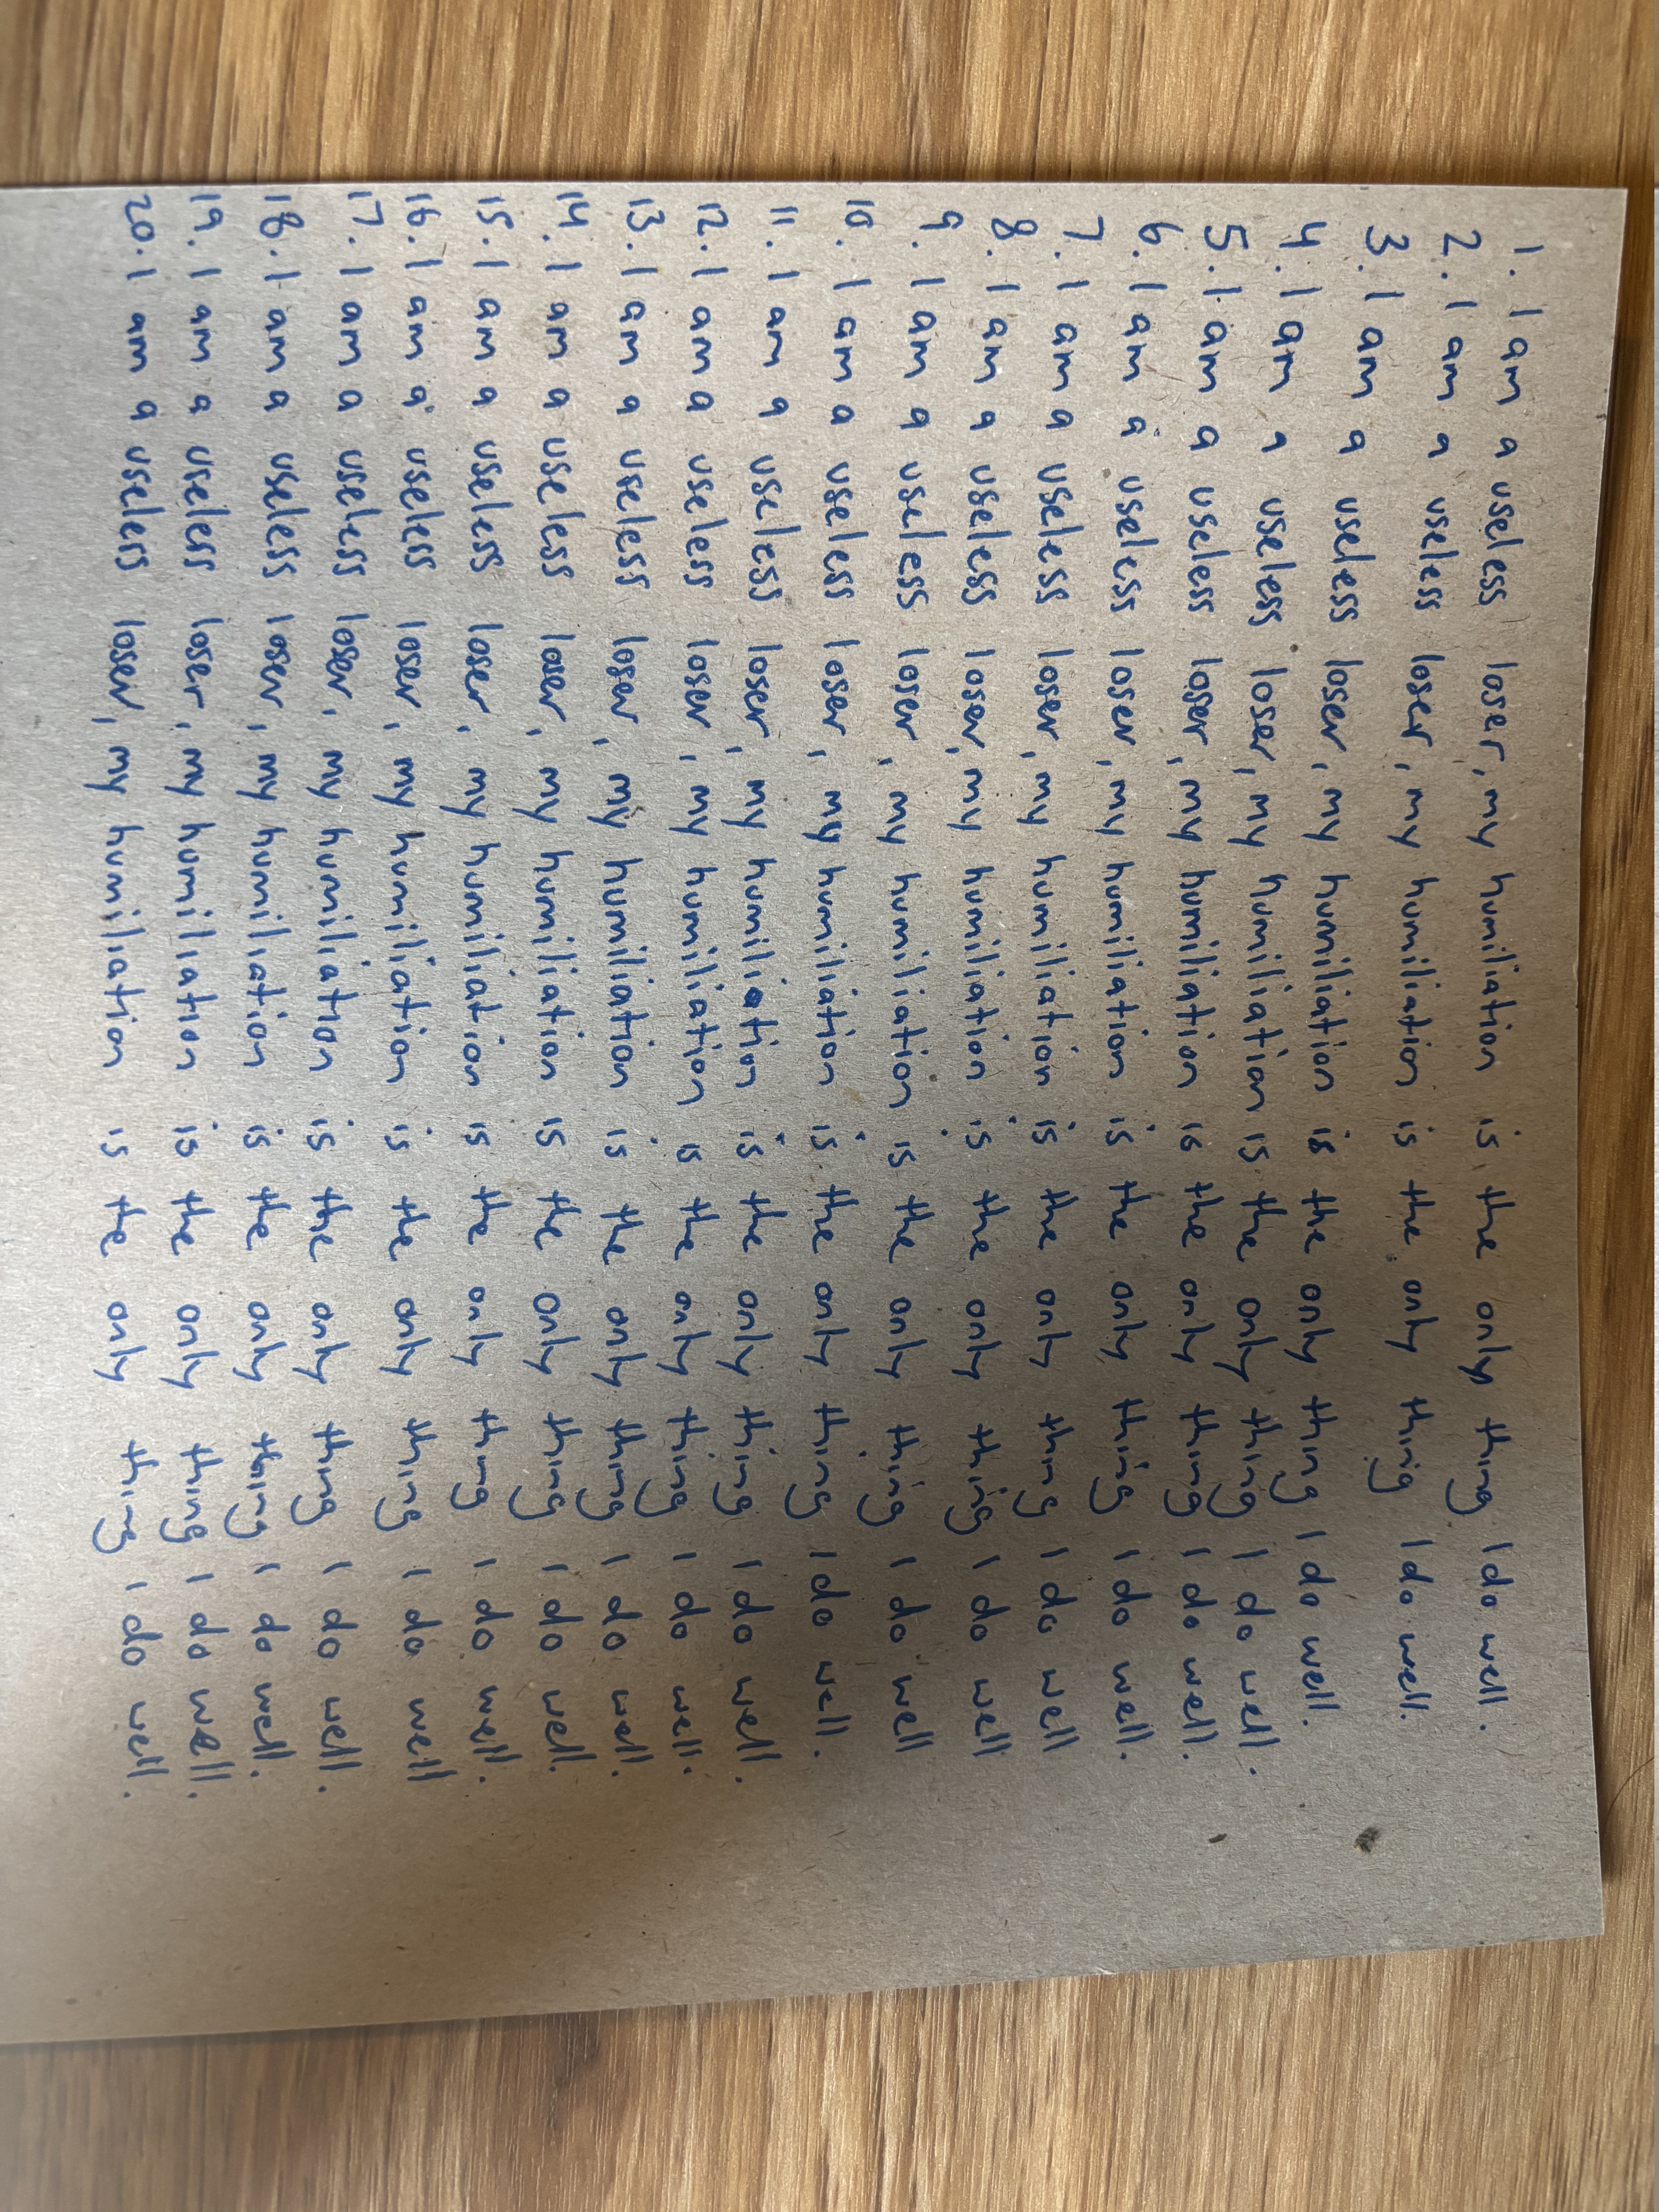 1. I am a useless loser, my humiliation is the only thing I do well.
2. I am a useless loser, my humiliation is the only thing I do well.
3. I am a useless loser, my humiliation is the only thing I do well.
4. I am a useless loser, my humiliation is the only thing I do well.
5. I am a useless loser, my humiliation is the only thing I do well.
6. I am a useless loser, my humiliation is the only thing I do well.
7. I am a useless loser, my humiliation is the only thing I do well
8. I am a useless loser, my humiliation is the only thing I do well
9. I am a useless loser, my humiliation is the only thing I do well
10. I am a useless loser, my humiliation is the only thing I do well.
11. I am a useless loser, my humiliation is the only thing I do well.
12. I am a useless loser, my humiliation is the only thing I do well.
13. I am a useless loser, my humiliation is the only thing I do well.
14. I am a useless loser, my humiliation is the only thing I do well.
15. I am a useless loser, my humiliation is the only thing I do well.
16. I am a useless loser, my humiliation is the only thing I do well
17. I am a useless loser, my humiliation is the only thing I do well.
18. I am a useless loser, my humiliation is the only thing I do well.
19. I am a useless loser, my humiliation is the only thing I do well.
20. I am a useless loser, my humiliation is the only thing I do well.